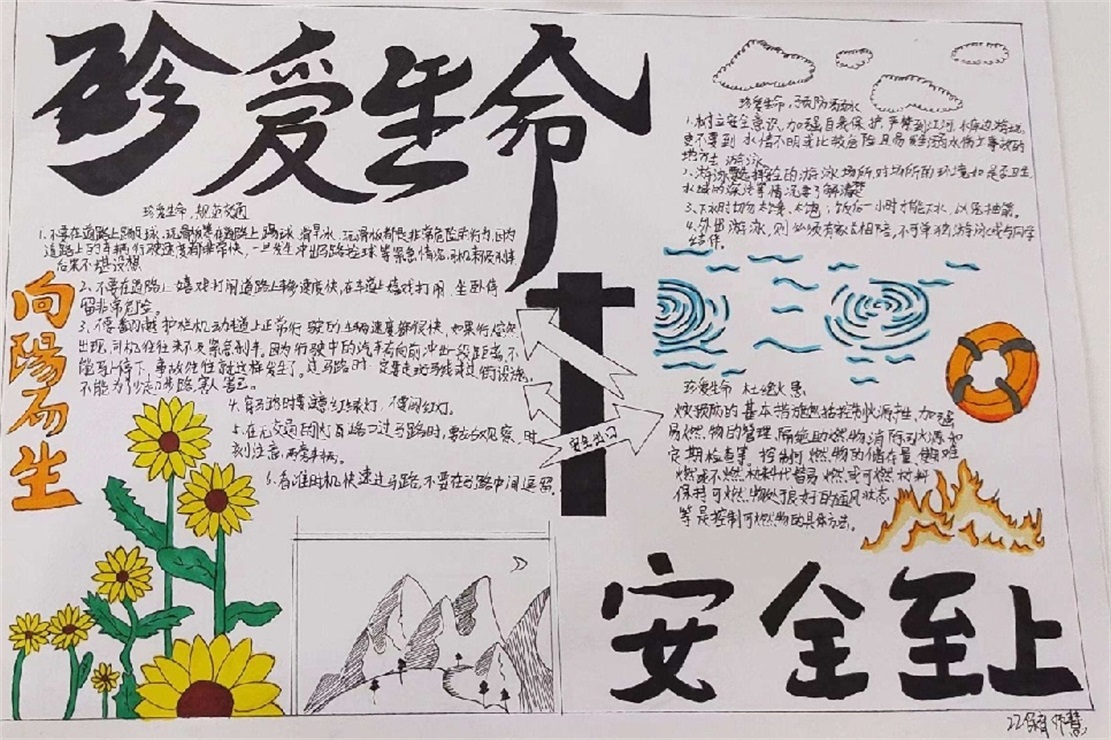 珍爱生命
珍爱生命,规范交通
1.不要在道路上踢球、玩滑板等在道路上踢球、滑旱冰、玩滑板都是非常危险的行为,因为
道路上的车辆行驶速度都非常快,一旦发生冲出马路捡球等紧急情况,司机来不及刹车
后果不堪设想
2、不要在道路上嬉戏打闹道路上车速度快,在车道上嬉戏打闹、坐卧停
留非常危险。
3、不要翻越护栏机动车道上正常行驶的车辆速度都很快,如果行人突然
出现,司机往往来不及紧急刹车。因为行驶中的汽车有向前冲出一段距离,不
能马上停下,事故往往就这样发生了。过马路时一定要走斑马线或过街设施,
不能为了少走几步路,害人害己。
4、穿马路时要注意红绿灯,不要闯红灯。
5、在没交通的灯的路口过马路时,要左右观察,时
刻注意,两旁车辆。
6、看准时机快速过马路,不要在马路中间逗留。
向陽而生
安全出口
珍爱生命,预防溺水
1.树立安全意识,加强自我保护,严禁到江河、水库边游玩,
更不要到水情不明或比较危险且易发生溺水伤亡事故的
地方生游泳
2、游泳要选择好的游泳场所,对场所的环境如是否卫生,
水域的深浅等情况要了解清楚
3、下水时切勿太饿、太饱,饭后一小时才能下水,以免抽筋。
4、外出游泳,则必须有家长相陪,不可单独游泳或与同学
结伴。
珍爱生命 杜绝火患
火预防的基本措施包括控制火源产生,加强
易燃物的管理,隔绝助燃物,消除可火源和
定期检查等,控制可燃物的储存量,使用难
燃或不燃材料代替易燃或可燃材料
保持可燃物处于良好的通风状态
等是控制可燃物的具体方法。
安全至上